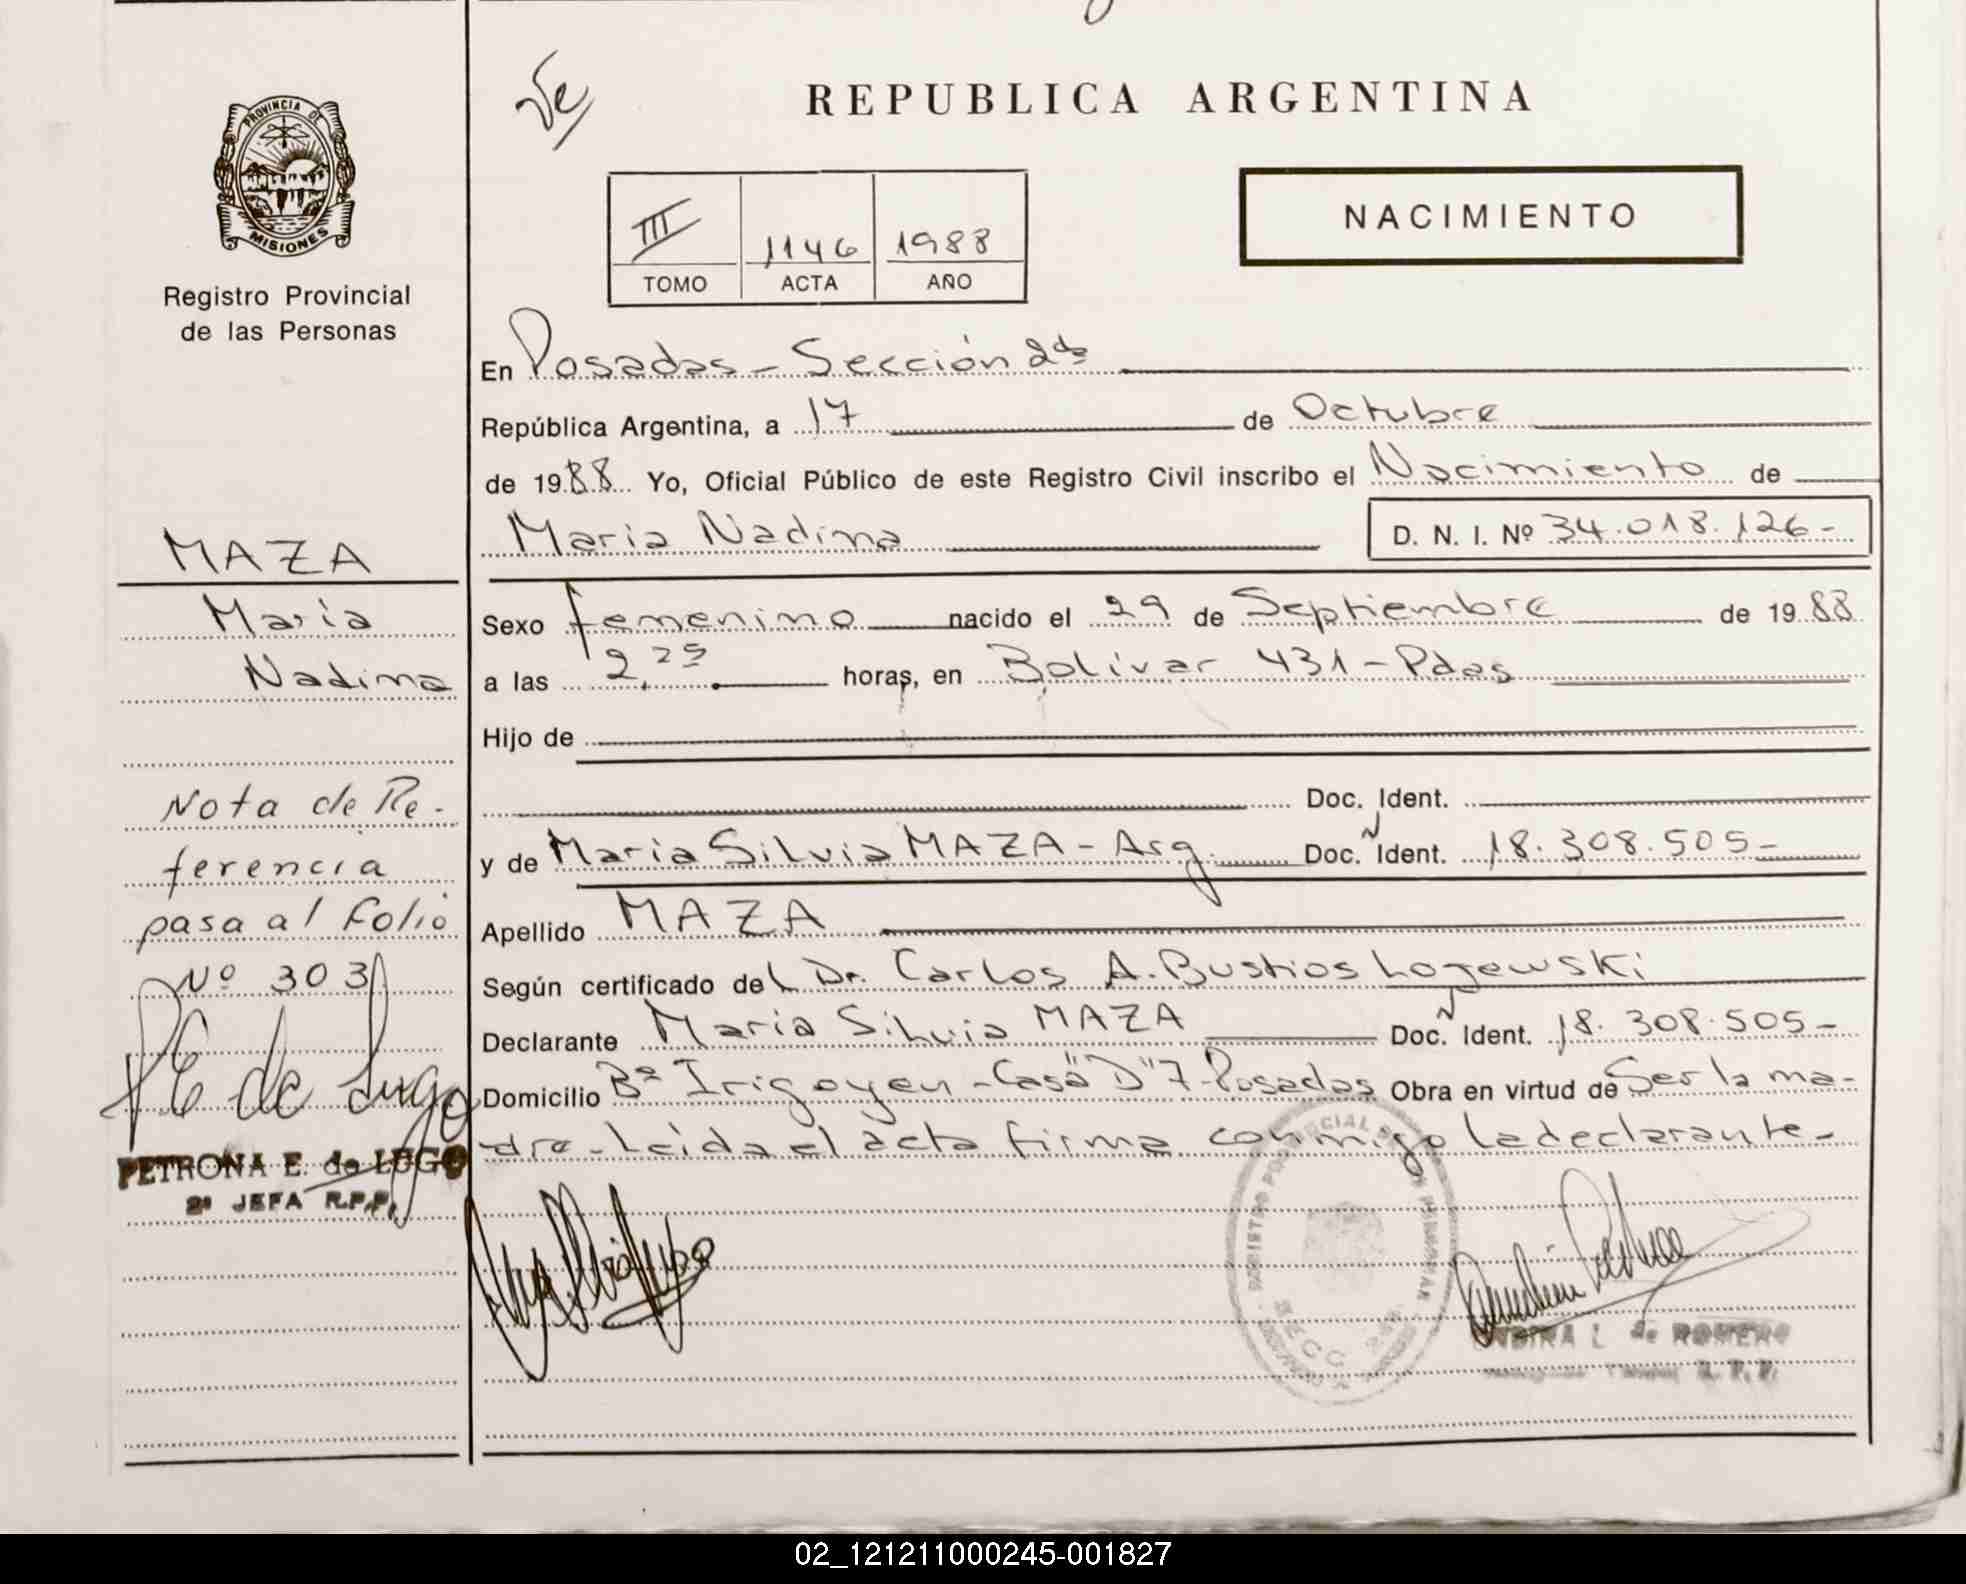 Ve
REPUBLICA ARGENTINA
PROVINCIA DE
MISIONES
Registro Provincial
de las Personas
III 1146 1988
TOMO ACTA AÑO
NACIMIENTO
En Posadas - Sección 2da
República Argentina, a 17 de Octubre
de 1988 Yo, Oficial Público de este Registro Civil inscribo el Nacimiento de
María Nadima
D. N. I. Nº 34.018.126-
Sexo femenino nacido el 29 de Septiembre de 1988
a las 2,25 horas, en Bolívar 431 - Pdas
Hijo de
Doc. Ident.
y de María Silvia MAZA - Arg. Doc. N Ident. 18.308.505-
Apellido MAZA
Según certificado del Dr. Carlos A. Bustios Lojewski
Declarante María Silvia MAZA Doc. N Ident. 18.308.505-
Domicilio Bº Irigoyen - Casa "D" 7 - Posadas Obra en virtud de Ser la ma-
dre - Leída el acta firma conmigo la declarante -
MAZA
María
Nadima
Nota de Re-
ferencia
pasa al folio
Nº 303
PE de Lugo
PETRONA E. de LUGO
2ª JEFA R.P.P.
REGISTRO PROVINCIAL DE LAS PERSONAS
SECC.
L. de ROMERO
R. P. P.
02_121211000245-001827